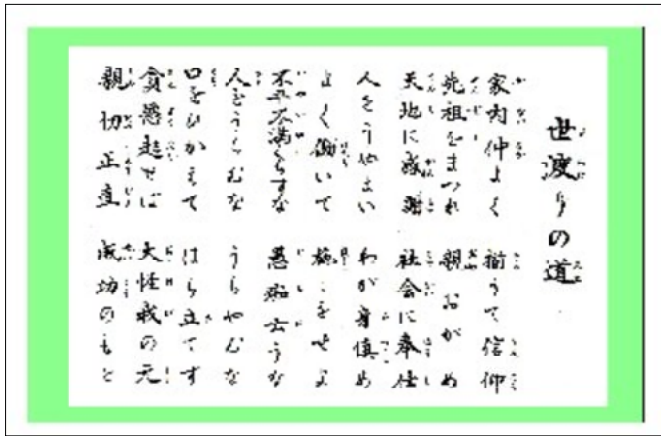 世渡りの道
家内仲よく 揃うて信仰
先祖をまつれ 親おがめ
天地に感謝 社会に奉仕
人をうやまい わが身慎め
よく働いて 施しをせよ
不平不満くらすな 愚痴云うな
人をうらむな うらやむな
口をひかえて はら立てず
貪慾起せば 大怪我の元
親切正直 成功のもと